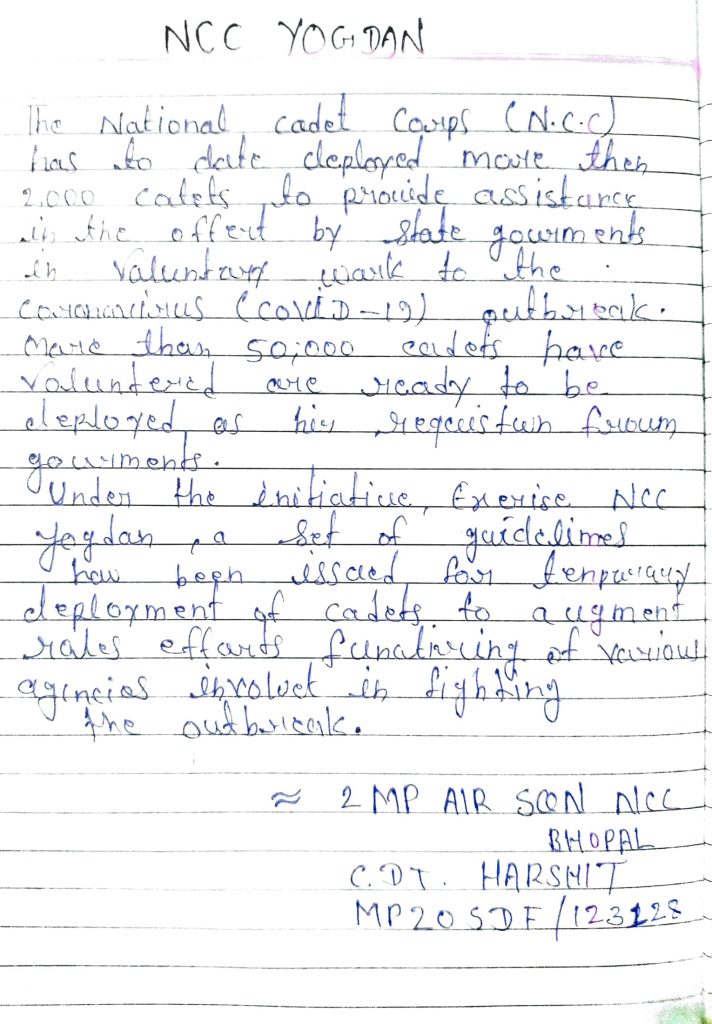 NCC YOGDAN
The National cadet Corps (N.C.C)
has to date deployed more then
2,000 catets to provide assistance
in the effert by state gouvrments
in valuntary work to the
Coronavirus (COVID-19) outbreak.
More than 50,000 cadets have
voluntered are ready to be
deployed as
gouvrments.
Under the initiative, Exerise NCC
Yogdan, a set of guidelimes
hav been issued for
deployment of cadets to augment
rates effarts of various
agencies involvet in fighting
the outbreak.
≈ 2 MP AIR SQN NCC
BHOPAL
C.DT. HARSHIT
MP20SDF/123128